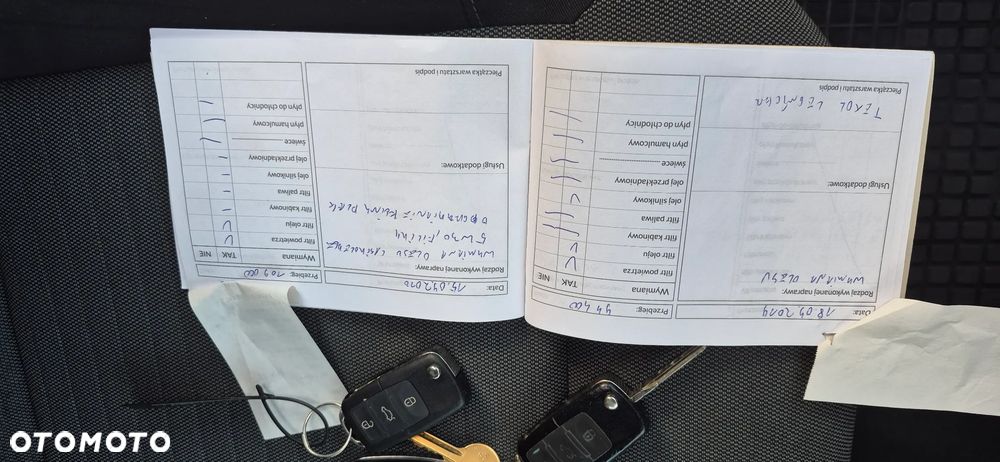 Data: 18.09.2019 Przebieg: 94 400
Rodzaj wykonanej naprawy:
WYMIANA OLEJU
Usługi dodatkowe:
Pieczątka warsztatu i podpis
Wymiana TAK NIE
filtr powietrza V
filtr oleju V
filtr kabinowy
filtr paliwa
olej silnikowy V
olej przekładniowy
świece
płyn hamulcowy
płyn do chłodnicy
Data: Przebieg: 109 000
Rodzaj wykonanej naprawy:
WYMIANA OLEJU
5W30, FILTRY
Usługi dodatkowe:
Pieczątka warsztatu i podpis
Wymiana TAK NIE
filtr powietrza V
filtr oleju V
filtr kabinowy
filtr paliwa
olej silnikowy
olej przekładniowy
świece
płyn hamulcowy
płyn do chłodnicy
OTOMOTO